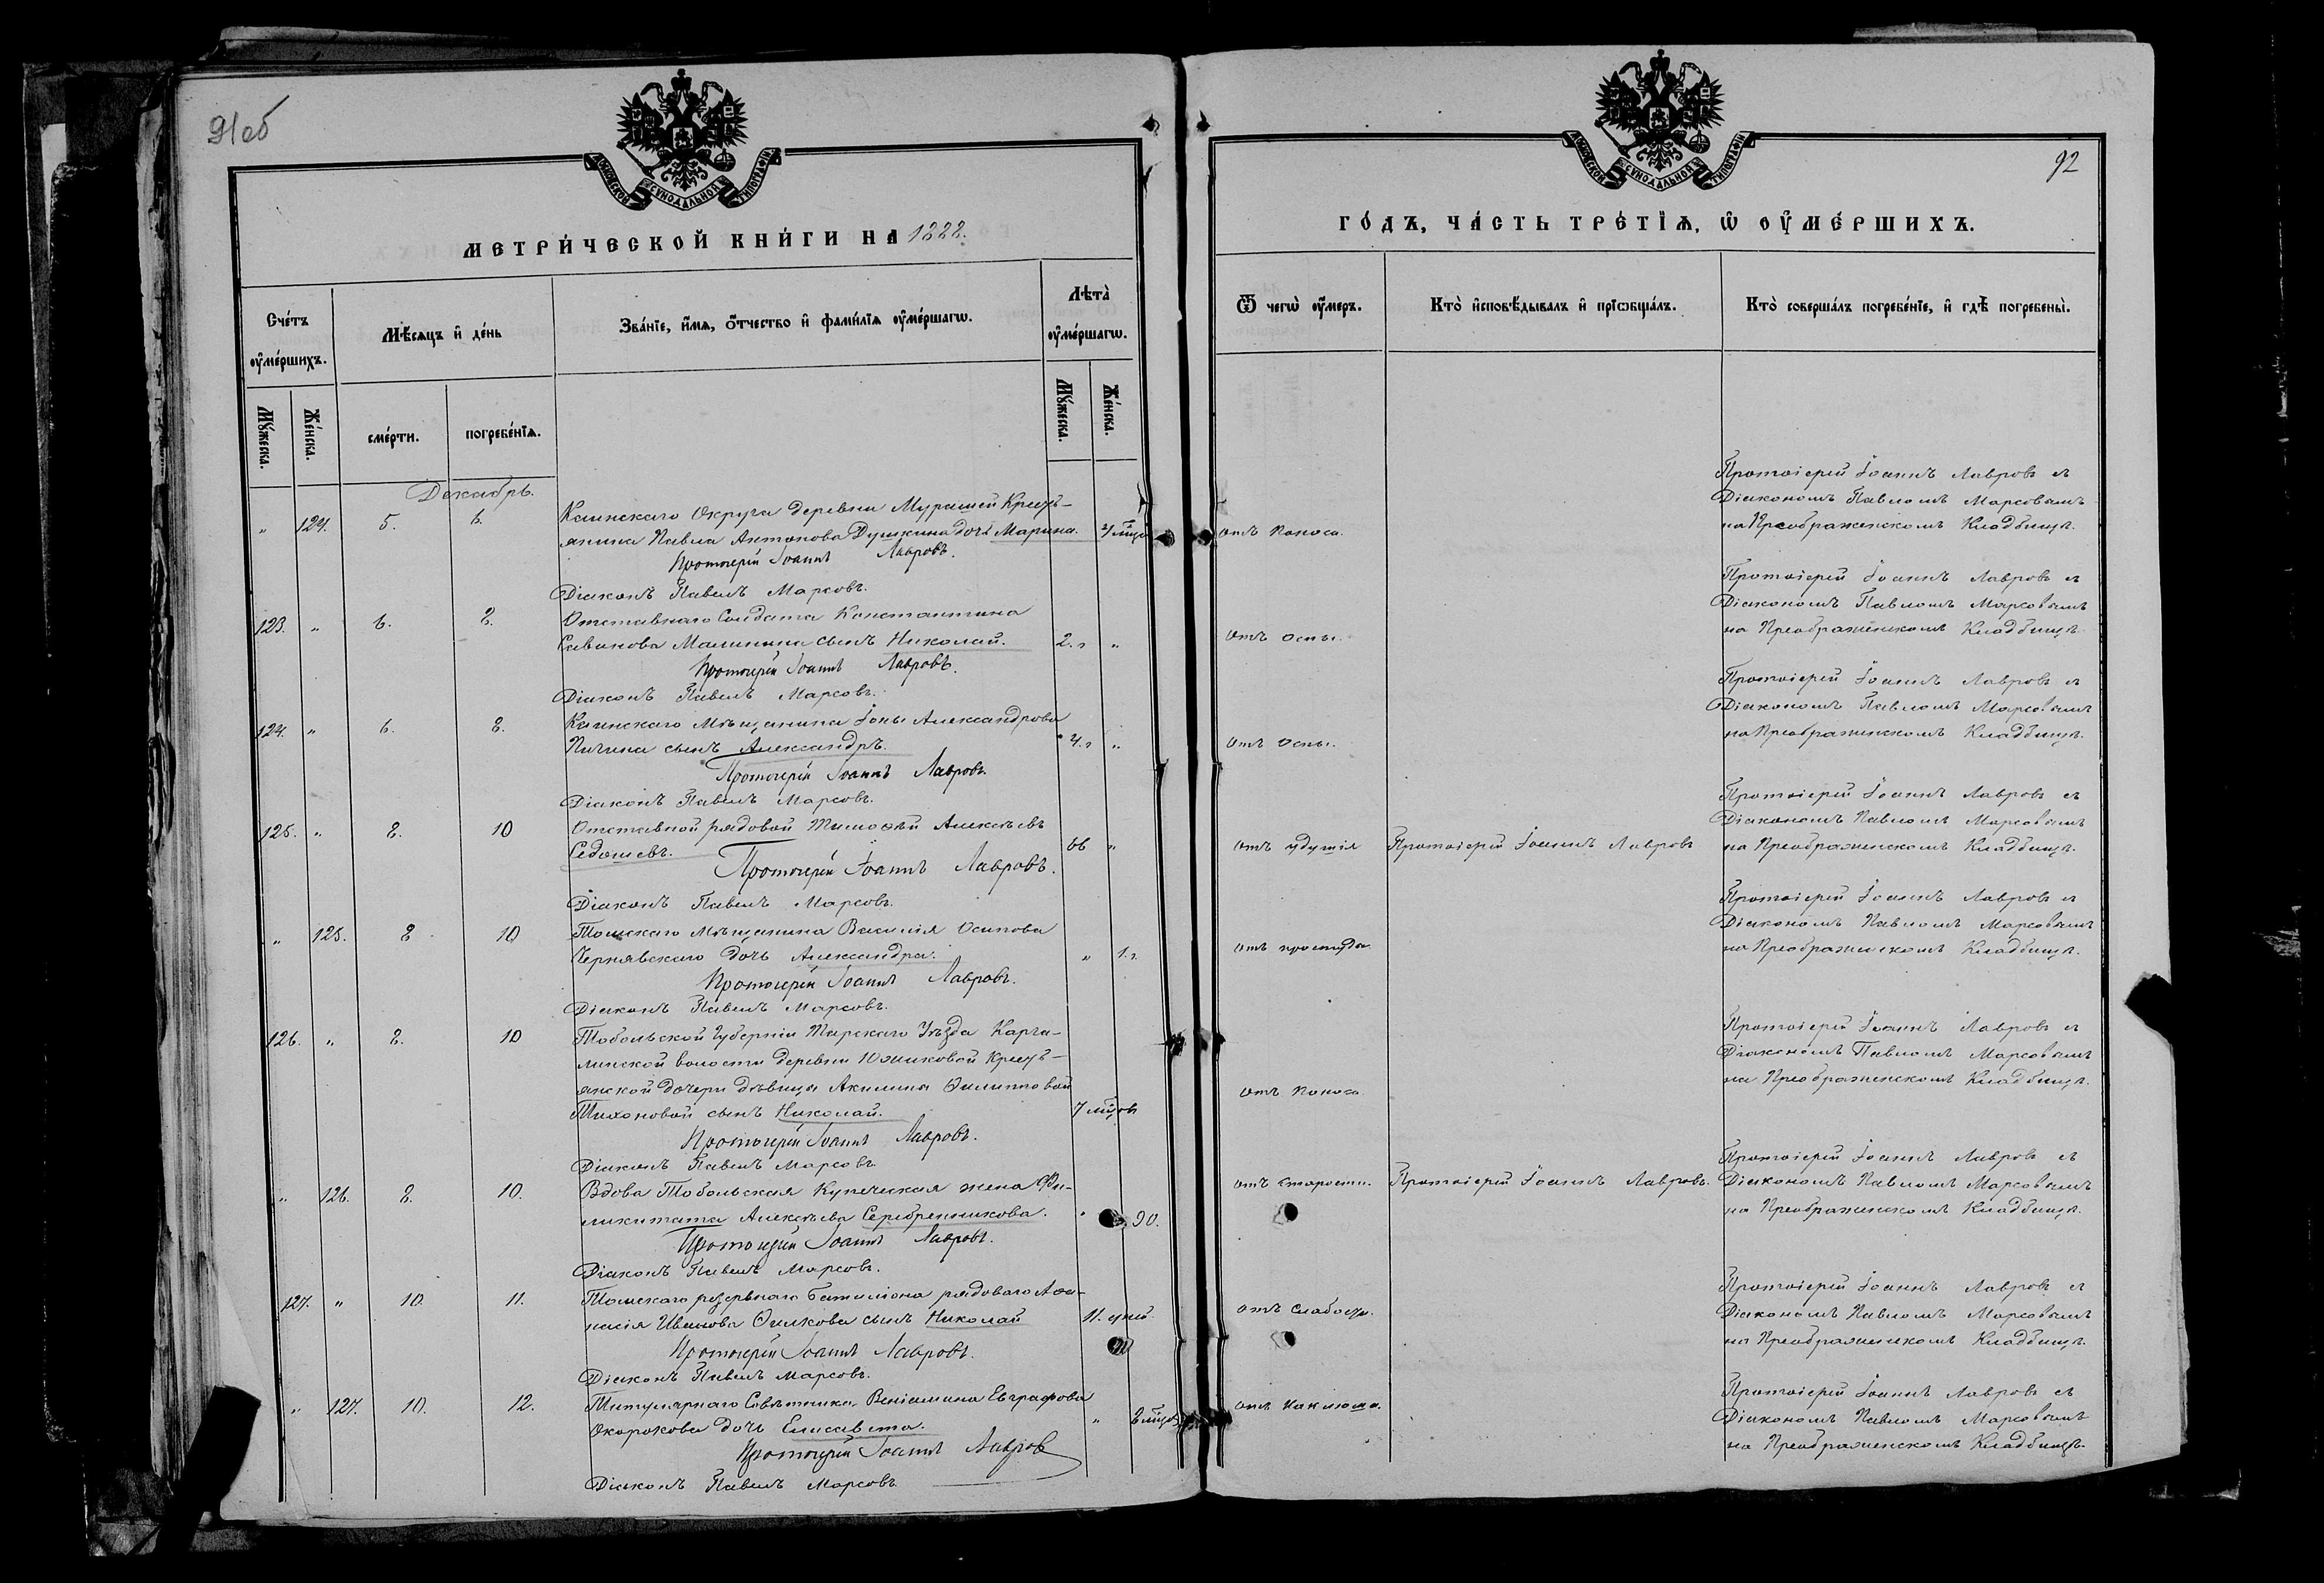 91об
МОСКОВСКОЙ СѴНОДАЛЬНОЙ ТИПОГРАФІИ
МЕТРИ́ЧЕСКОЙ КНИ́ГИ НА 1888.
Сче́тъ ᲂу҆ме́ршихъ.
Мѣ́сѧцъ и҆ де́нь
Зва́нїе, и҆́мѧ, ѻ҆́тчество и҆ фами́лїѧ ᲂу҆ме́ршагѡ.
Лѣ́та ᲂу҆ме́ршагѡ.
Мꙋ́жеска.
Же́нска.
сме́рти.
погребе́нїѧ.
Мꙋ́жеска.
Же́нска.
Декабрь.
„ 124. 5. 6. Каинскаго Округа деревни Мурашей Крест-
янина Павла Антонова Душкина дочь Марина.
Протоіерей Іоаннъ Лавровъ.
Діаконъ Павелъ Марсовъ.
123. „ 6. 8. Отставнаго Солдата Константина
Савинова Малинина сынъ Николай. 2. г „
Протоіерей Іоаннъ Лавровъ.
Діаконъ Павелъ Марсовъ.
124. „ 6. 8. Каинскаго Мѣщанина Іоны Александрова
Пичина сынъ Александръ. 4. г „
Протоіерей Іоаннъ Лавровъ.
Діаконъ Павелъ Марсовъ.
125. „ 8. 10 Отставной рядовой Тимоѳей Алексѣевъ
Седошевъ. 66 „
Протоіерей Іоаннъ Лавровъ.
Діаконъ Павелъ Марсовъ.
„ 125. 8 10 Томскаго Мѣщанина Василія Осипова
Чернявскаго дочь Александра. „ 1. г.
Протоіерей Іоаннъ Лавровъ.
Діаконъ Павелъ Марсовъ.
126. „ 8. 10 Тобольской Губерніи Тарскаго Уѣзда Карга-
линской волости деревни Крест-
янской дочери дѣвицы Акилины Филипповой
Тихоновой сынъ Николай. 7 мцов
Протоіерей Іоаннъ Лавровъ.
Діаконъ Павелъ Марсовъ
„ 126. 8. 10. Вдова Тобольская Купеческая жена Фи-
ликитата Алексѣева Серебренникова. „ 90.
Протоіерей Іоаннъ Лавровъ.
Діаконъ Павелъ Марсовъ.
127. „ 10. 11. Томскаго резервнаго Баталіона рядоваго Аѳа-
насія Иванова Филкова сынъ Николай 11. дней
Протоіерей Іоаннъ Лавровъ.
Діаконъ Павелъ Марсовъ.
„ 127. 10. 12. Титулярнаго Совѣтника Веніамина Евграфова
Окорокова дочь Елисавета. „
Протоіерей Іоаннъ Лавровъ
Діаконъ Павелъ Марсовъ
92
МОСКОВСКОЙ СѴНОДАЛЬНОЙ ТИПОГРАФІИ
ГО́ДЪ, ЧА́СТЬ ТРЕ́ТЇѦ, Ѡ҆ ОУ҆МЕ́РШИХЪ.
Ѿ чегѡ̀ ᲂу҆́меръ.
Кто̀ и҆сповѣ́дывалъ и҆ прїѡбща́лъ.
Кто̀ соверша́лъ погребе́нїе, и҆ гдѣ̀ погребены̀.
Протоіерей Іоаннъ Лавровъ съ
Діакономъ Павломъ Марсовымъ
отъ поноса. на Преображенскомъ Кладбищѣ.
Протоіерей Іоаннъ Лавровъ съ
Діакономъ Павломъ Марсовымъ
отъ оспы. на Преображенскомъ Кладбищѣ.
Протоіерей Іоаннъ Лавровъ съ
Діакономъ Павломъ Марсовымъ
отъ оспы. на Преображенскомъ Кладбищѣ.
Протоіерей Іоаннъ Лавровъ съ
Діакономъ Павломъ Марсовымъ
отъ удушія Протоіерей Іоаннъ Лавровъ на Преображенскомъ Кладбищѣ.
Протоіерей Іоаннъ Лавровъ съ
Діакономъ Павломъ Марсовымъ
отъ простуды на Преображенскомъ Кладбищѣ.
Протоіерей Іоаннъ Лавровъ съ
Діакономъ Павломъ Марсовымъ
отъ поноса на Преображенскомъ Кладбищѣ.
Протоіерей Іоаннъ Лавровъ съ
отъ старости. Протоіерей Іоаннъ Лавровъ. Діакономъ Павломъ Марсовымъ
на Преображенскомъ Кладбищѣ.
Протоіерей Іоаннъ Лавровъ съ
отъ слабости. Діакономъ Павломъ Марсовымъ
на Преображенскомъ Кладбищѣ.
Протоіерей Іоаннъ Лавровъ съ
отъ коклюша. Діакономъ Павломъ Марсовымъ
на Преображенскомъ Кладбищѣ.